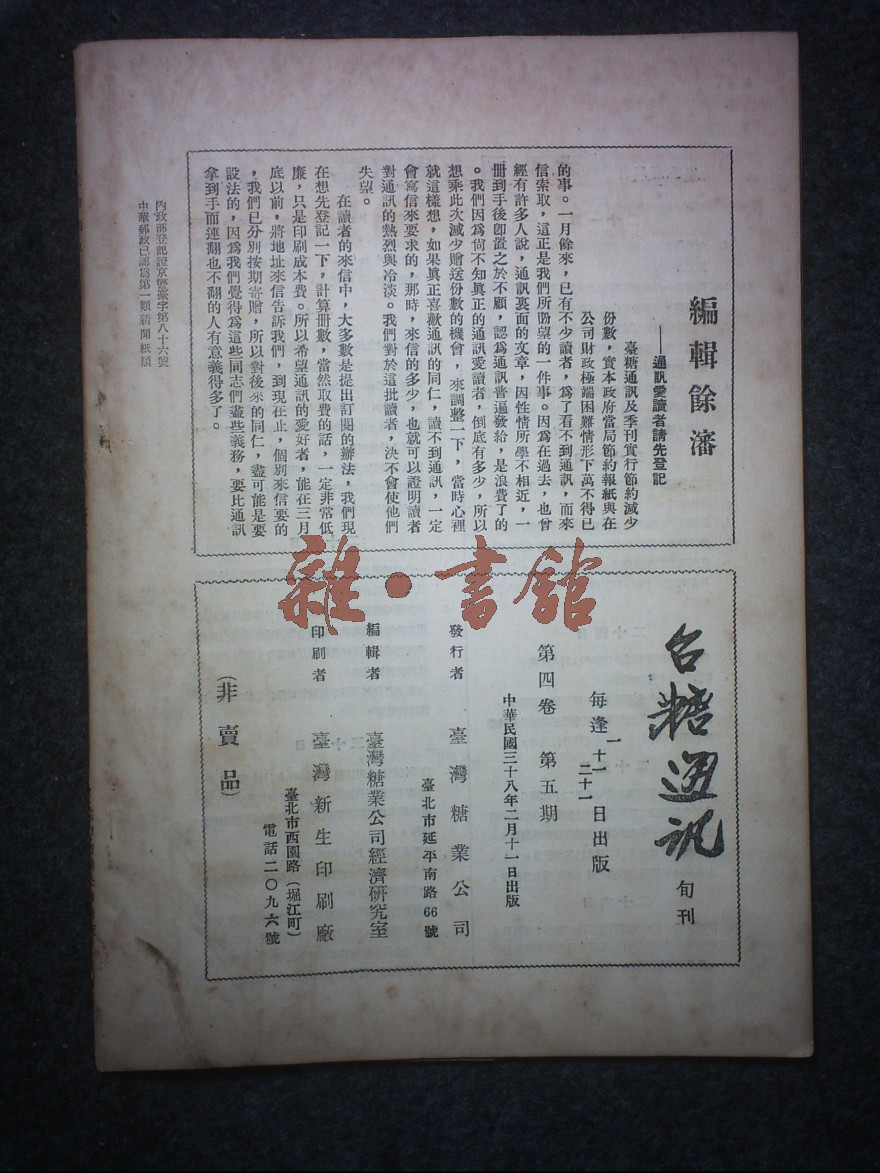 編輯餘瀋
——通訊愛讀者請先登記
臺糖通訊及季刊實行節約減少
份數，實本政府當局節約報紙與在
公司財政極端困難情形下萬不得已
的事。一月餘來，已有不少讀者，爲了看不到通訊，而來
信索取，這正是我們所盼望的一件事。因爲在過去，也曾
經有許多人說，通訊裏面的文章，因性情所學不相近，一
冊到手後卽置之於不顧，認爲通訊普遍發給，是浪費了的
。我們因爲尙不知眞正的通訊愛讀者，倒底有多少，所以
想乘此次減少贈送份數的機會，來調整一下，當時心裡
就這樣想，如果眞正喜歡通訊的同仁，讀不到通訊，一定
會寫信來要求的，那時，來信的多少，也就可以證明讀者
對通訊的熱烈與冷淡。我們對於這批讀者，決不會使他們
失望。
在讀者的來信中，大多數是提出訂閱的辦法，我們現
在想先登記一下，計算冊數，當然取費的話，一定非常低
廉，只是印刷成本費。所以希望通訊的愛好者，能在三月
底以前，將地址來信告訴我們，到現在止，個別來信要的
，我們已分別按期寄贈，所以對後來的同仁，盡可能是要
設法的，因爲我們覺得爲這些同志們盡些義務，要比通訊
拿到手而連翻也不翻的人有意義得多了。
內政部登記證京警臺字第八十六號
中華郵政已認爲第一類新聞紙類
雜·書館
台糖通訊 旬刊
每逢一 十一 二十一日出版
第四卷 第五期
中華民國三十八年二月十一日出版
發行者 臺灣糖業公司
臺北市延平南路66號
編輯者 臺灣糖業公司經濟研究室
印刷者 臺灣新生印刷廠
臺北市西園路（堀江町）
電話二〇九六號
（非賣品）